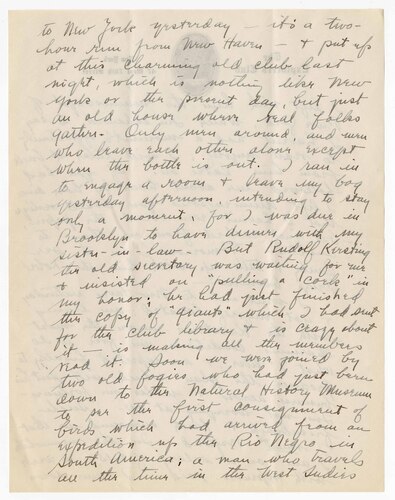 to New York yesterday — it's a two-
hour run from New Haven — & put up
at this charming old club last
night, which is nothing like New
York or the present day, but just
an old house where real folks
gather. Only men around, and men
who leave each other alone except
when the bottle is out. I ran in
to engage a room & leave my bag
yesterday afternoon, intending to stay
only a moment, for I was due in
Brooklyn to have dinner with my
sister-in-law. But Rudolf Kersting
the old secretary was waiting for me
& insisted on "pulling a cork" in
my honor; he had just finished
the copy of "giants" which I had sent
for the club library & is crazy about
it — is making all the members
read it. Soon we were joined by
two old fogies who had just been
down to the Natural History Museum
to see the first consignment of
birds which had arrived from an
expedition up the Rio Negro in
South America; a man who travels
all the time in the West Indies